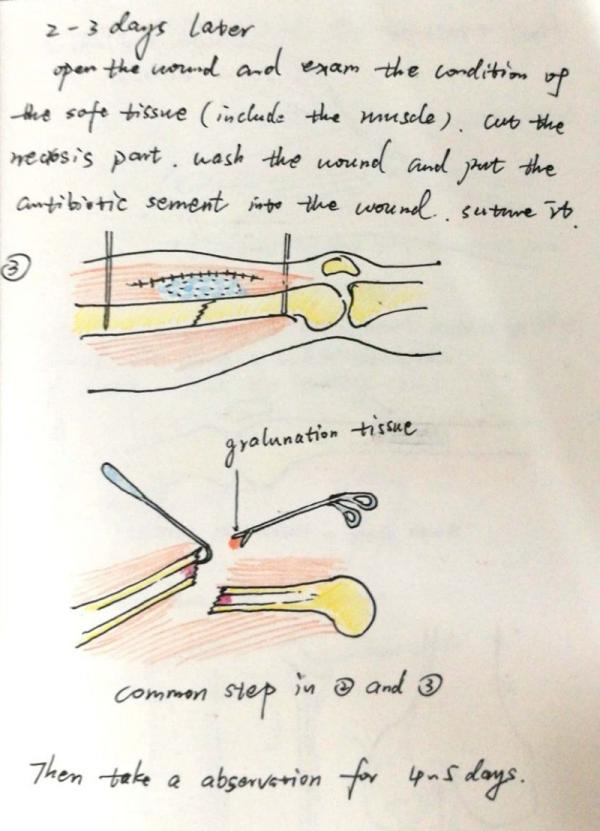 2-3 days Later
open the wound and exam the condition of
the safe tissue (include the muscle). cut the
necosis part. wash the wound and put the
antibiotic sement into the wound. suture it.
③
gralunation tissue
common step in ② and ③
Then take a absorvation for 4~5 days.